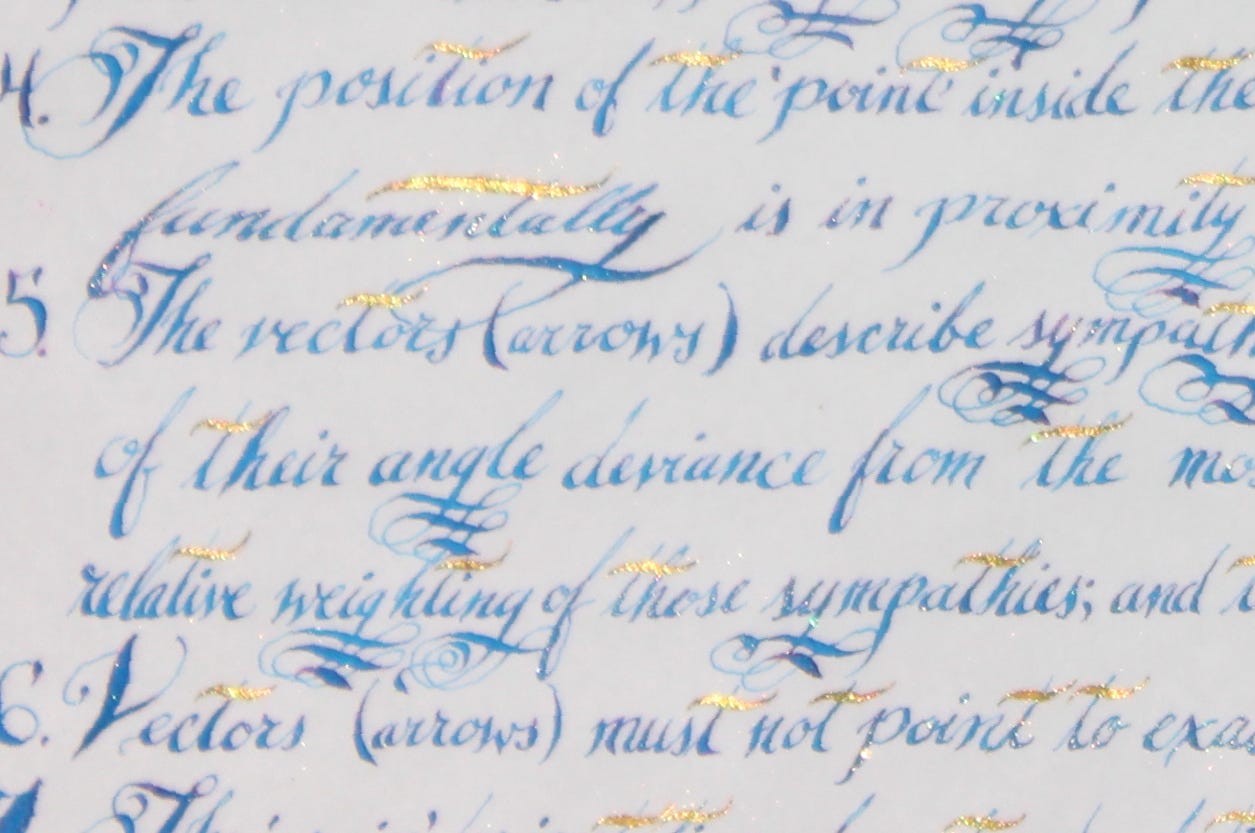 4. The position of the 'point' inside the
fundamentally is in proximity
5. The vectors (arrows) describe sympath
of their angle deviance from the mo
relative weighting of those sympathies; and t
6. Vectors (arrows) must not point to exa